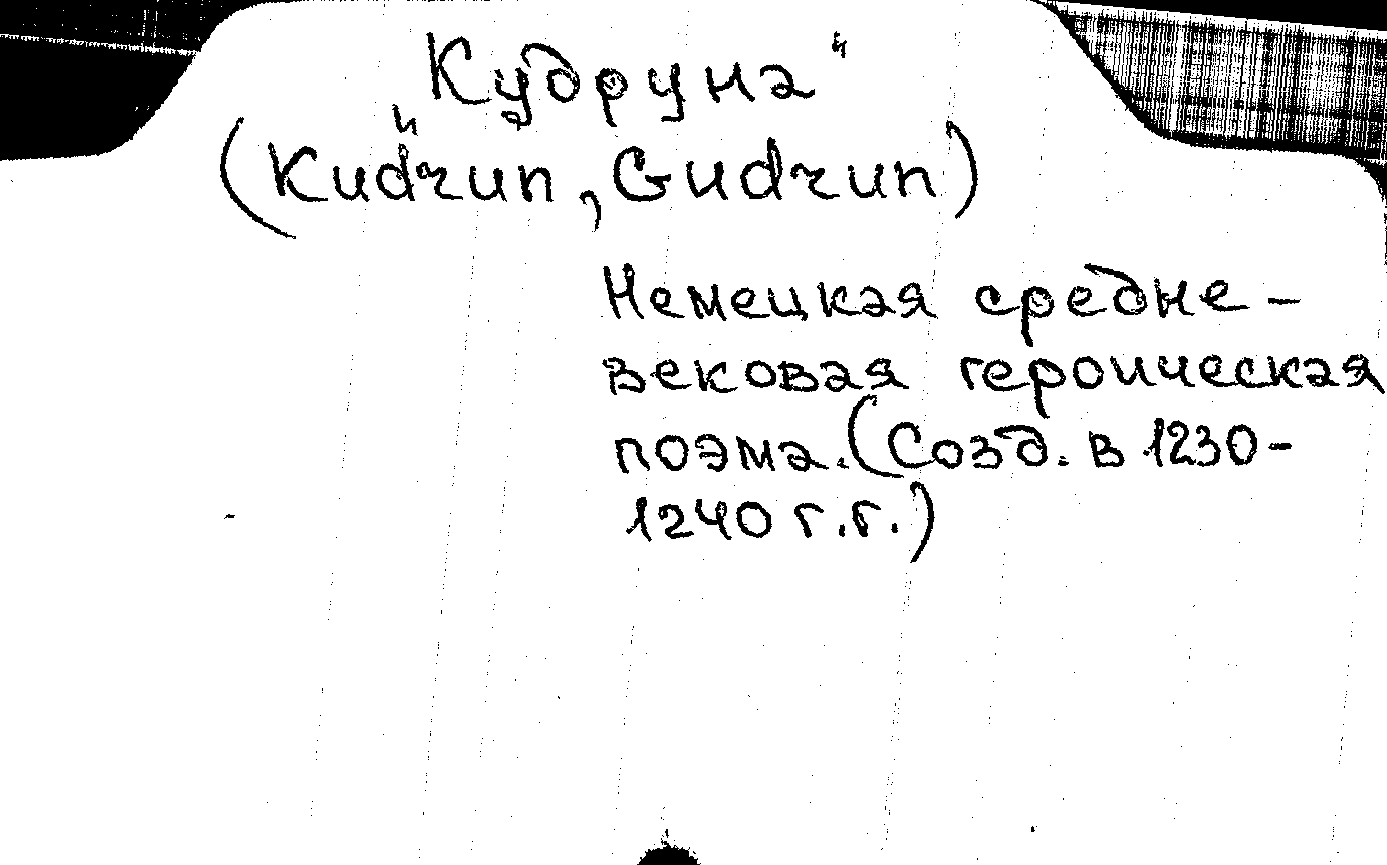 „Кудруна"
(Kudrun, Gudrun)
Немецкая средне-
вековая героическая
поэма. (Созд. в 1230-
1240 г.г.)